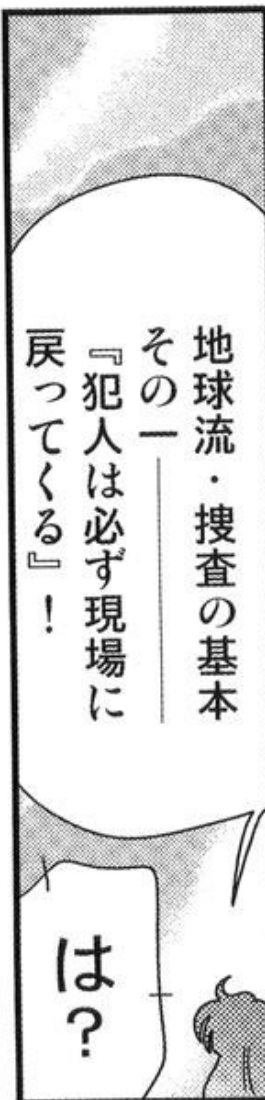 地球流・捜査の基本
その一――
『犯人は必ず現場に
戻ってくる』！
は？